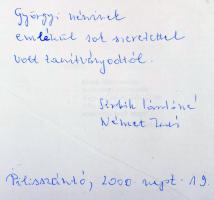 Györgyi néninek
emlékül sok szeretettel
volt tanítványodtól.
Németh
Pilisszántó, 2000 szept. 19.